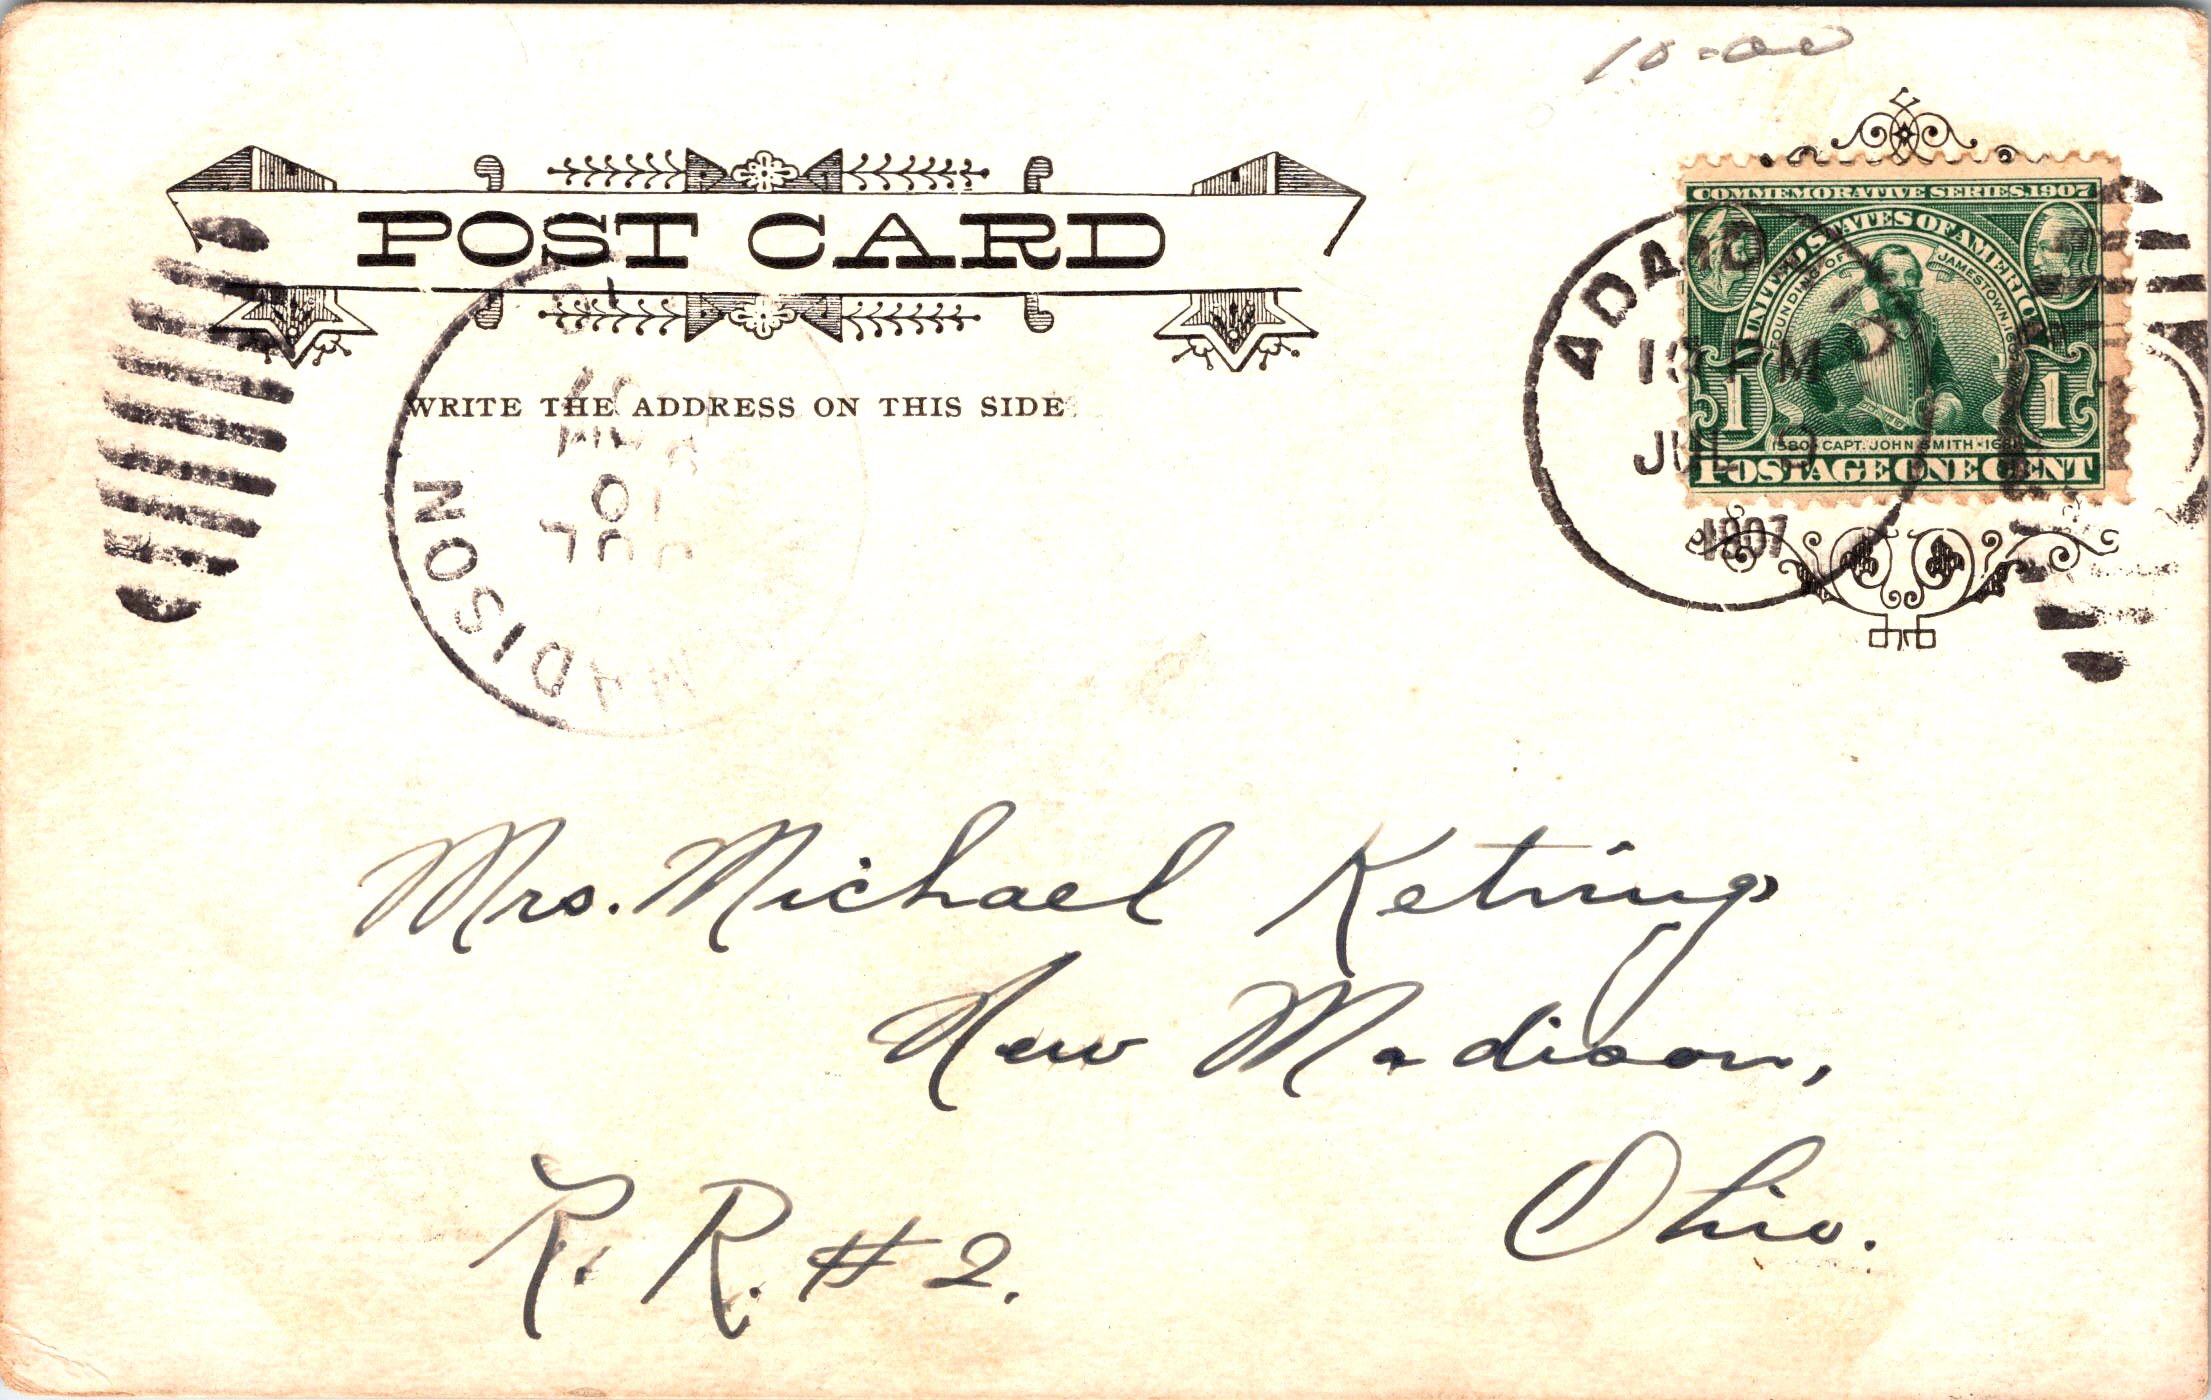 10.00
POST CARD
WRITE THE ADDRESS ON THIS SIDE
COMMEMORATIVE SERIES, 1907
UNITED STATES OF AMERICA
FOUNDING OF JAMESTOWN, 1607
1 1
1580 · CAPT. JOHN SMITH ·
POSTAGE ONE CENT
ADA
PM
JUL
1907
MADISON
JUL
10
Mrs. Michael Ketring
New Madison,
Ohio.
R. R. # 2.